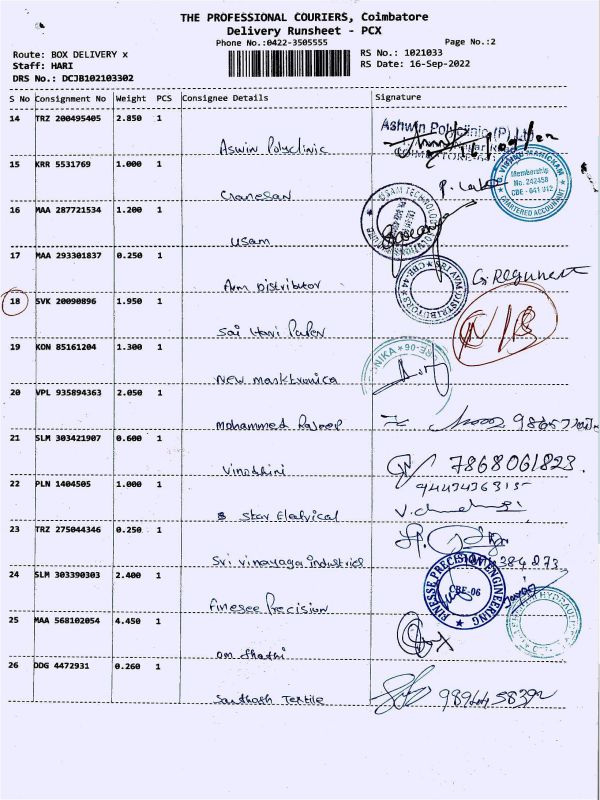 THE PROFESSIONAL COURIERS, Coimbatore
Delivery Runsheet - PCX
Phone No.:0422-3505555
Page No.:2
Route: BOX DELIVERY x
Staff: HARI
DRS No.: DCJB102103302
RS No.: 1021033
RS Date: 16-Sep-2022
S No Consignment No Weight PCS Consignee Details Signature
14 TRZ 200495405 2.850 1
Aswin Polyclinic
Ashwin Polyclinic (P) Ltd
COIMBATORE
15 KRR 5531769 1.000 1
Cranesan
VISHNU MANICKAM
Membership
No. 242458
CBE - 641 012
CHARTERED ACCOUNTANT
16 MAA 287721534 1.200 1
usam
USAM TECHNOLOGY SOLUTIONS
17 MAA 293301837 0.250 1
Arm Distributor
MAYTAS DISTRIBUTORS
CBE-44
18 SVK 20090896 1.950 1
Sai Hari Paper
19 KDN 85161204 1.300 1
New Marktronica
NIKA
CBE-06
20 VPL 935894363 2.050 1
Mohammed Rajeep
21 SLM 303421907 0.600 1
Vinodhini
7868061823.
22 PLN 1404505 1.000 1
Star Electrical
23 TRZ 275044346 0.250 1
Sri Vinayaga industries
24 SLM 303390303 2.400 1
Finesee Precision
FINESSE PRECISION ENGINEERING
CBE-06
25 MAA 568102054 4.450 1
om shathi
26 DDG 4472931 0.260 1
Santhosh Textile